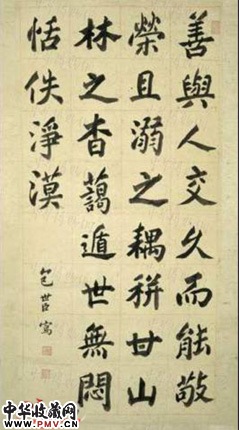 善與人交久而能敬
榮且溺之耦耕甘山
林之杳藹遁世無悶
恬佚淨漠
包世臣寫
中华收藏网
www.PMV.cn